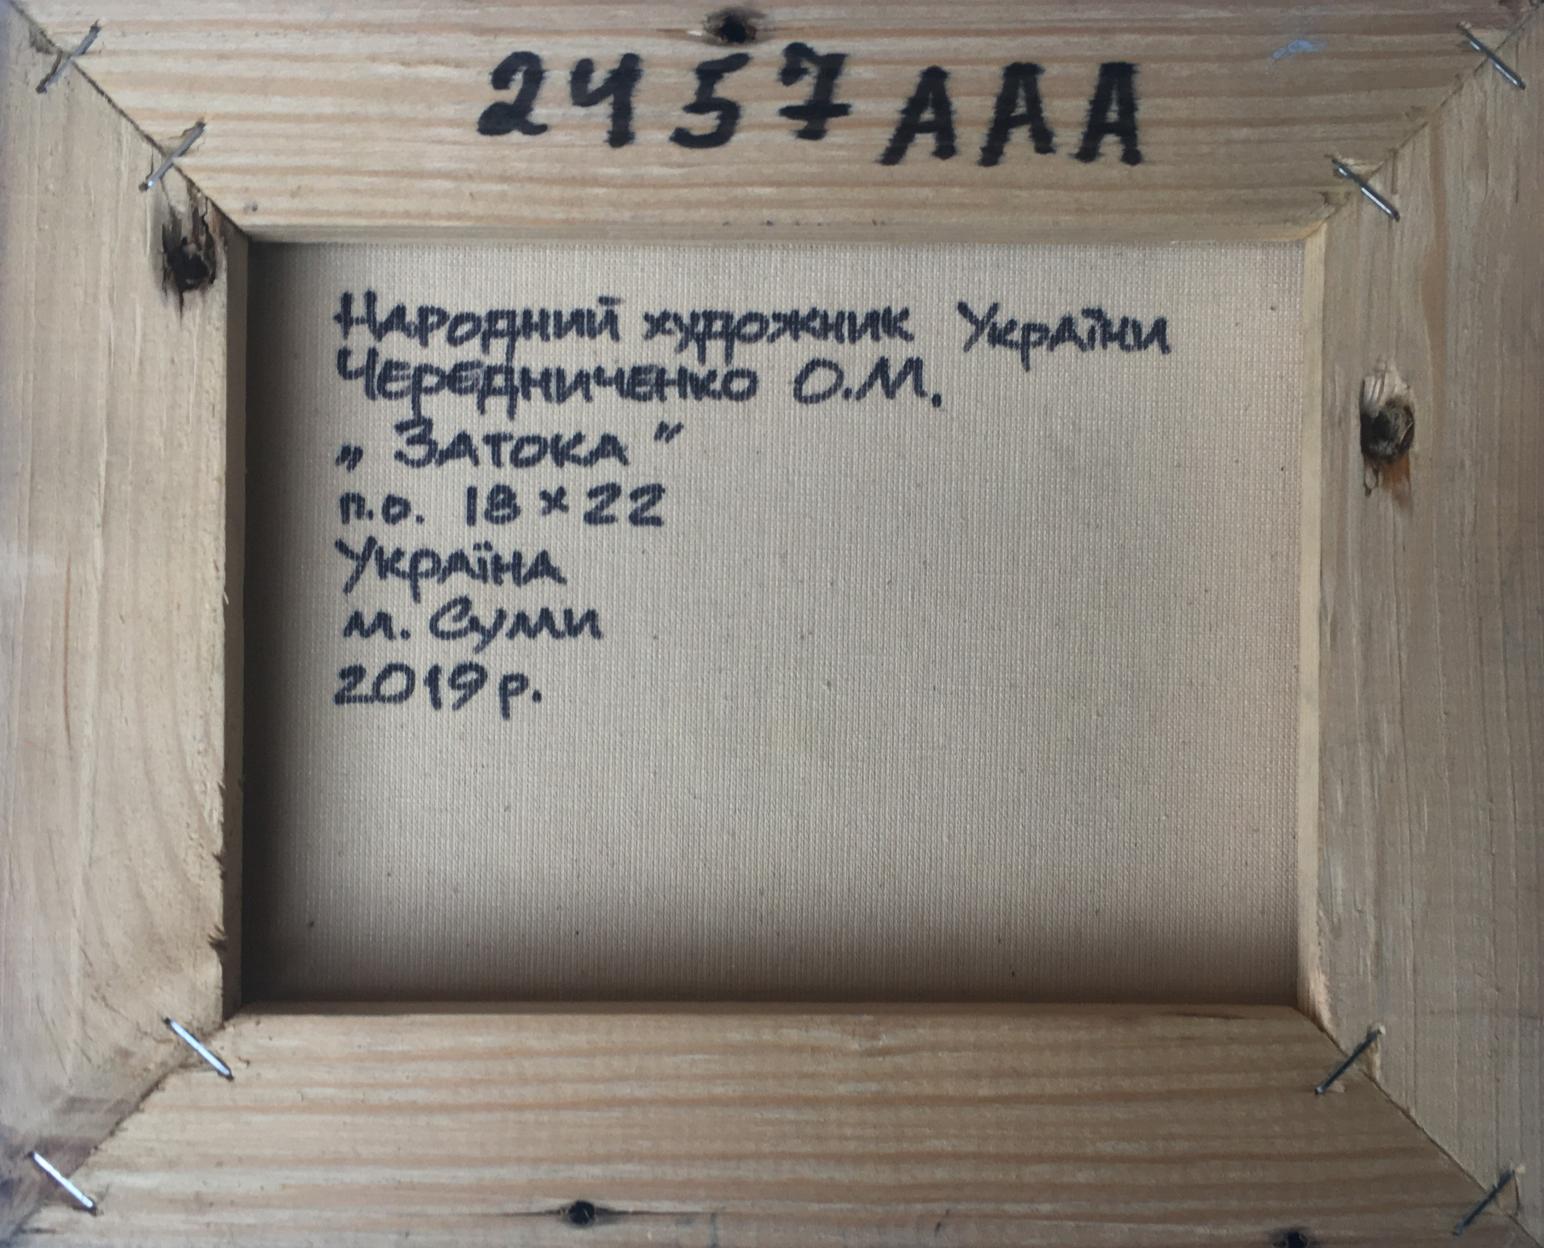 2457 ААА
Народний художник України
Чередниченко О.М.
„ Затока ”
п.о. 18 × 22
Україна
м. Суми
2019 р.